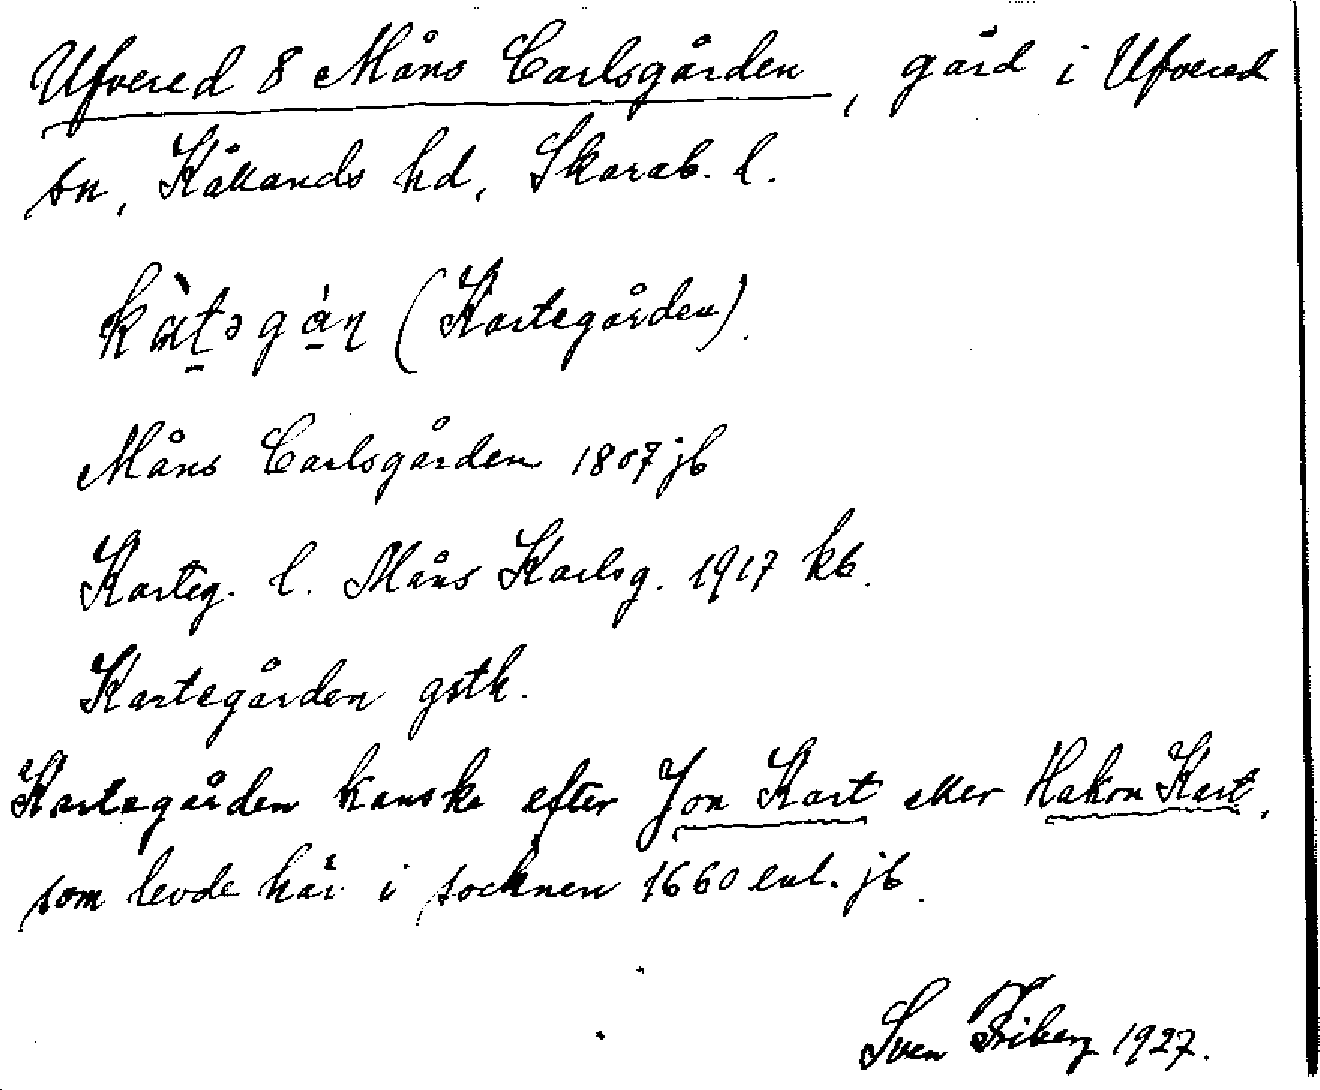 Ufvered 8 Måns Carlsgården, gård i Ufvered
sn, Kållands hd, Skarab. l.
kàt̠əgá̠ɳ (Kartegården).
Måns Carlsgården 1807 jb
Karteg. l. Måns Karlsg. 1917 kb.
Kartegården gstk.
Kartegården kanske efter Jon Kart eller Hakon Kart,
som levde här i socknen 1660 enl. jb.
Sven Friberg 1927.